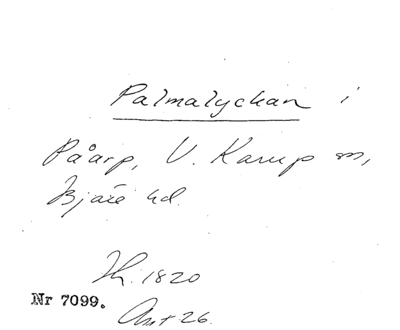 Palmalyckan i
Påarp, V. Karup sn,
Bjäre hd.
Jh. 1820
Nr 7099.
Ant 26.